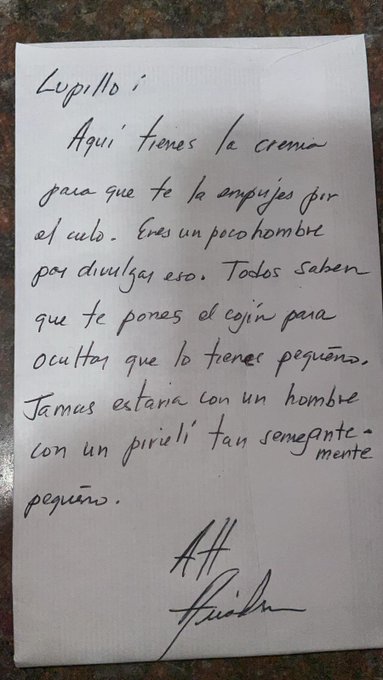 Lupillo:
Aquí tienes la crema
para que te la empujes por
el culo. Eres un poco hombre
por divulgar eso. Todos saben
que te pones el cojín para
ocultar que lo tienes pequeño.
Jamas estaria con un hombre
con un pirielí tan semejante-
mente
pequeño.
Att